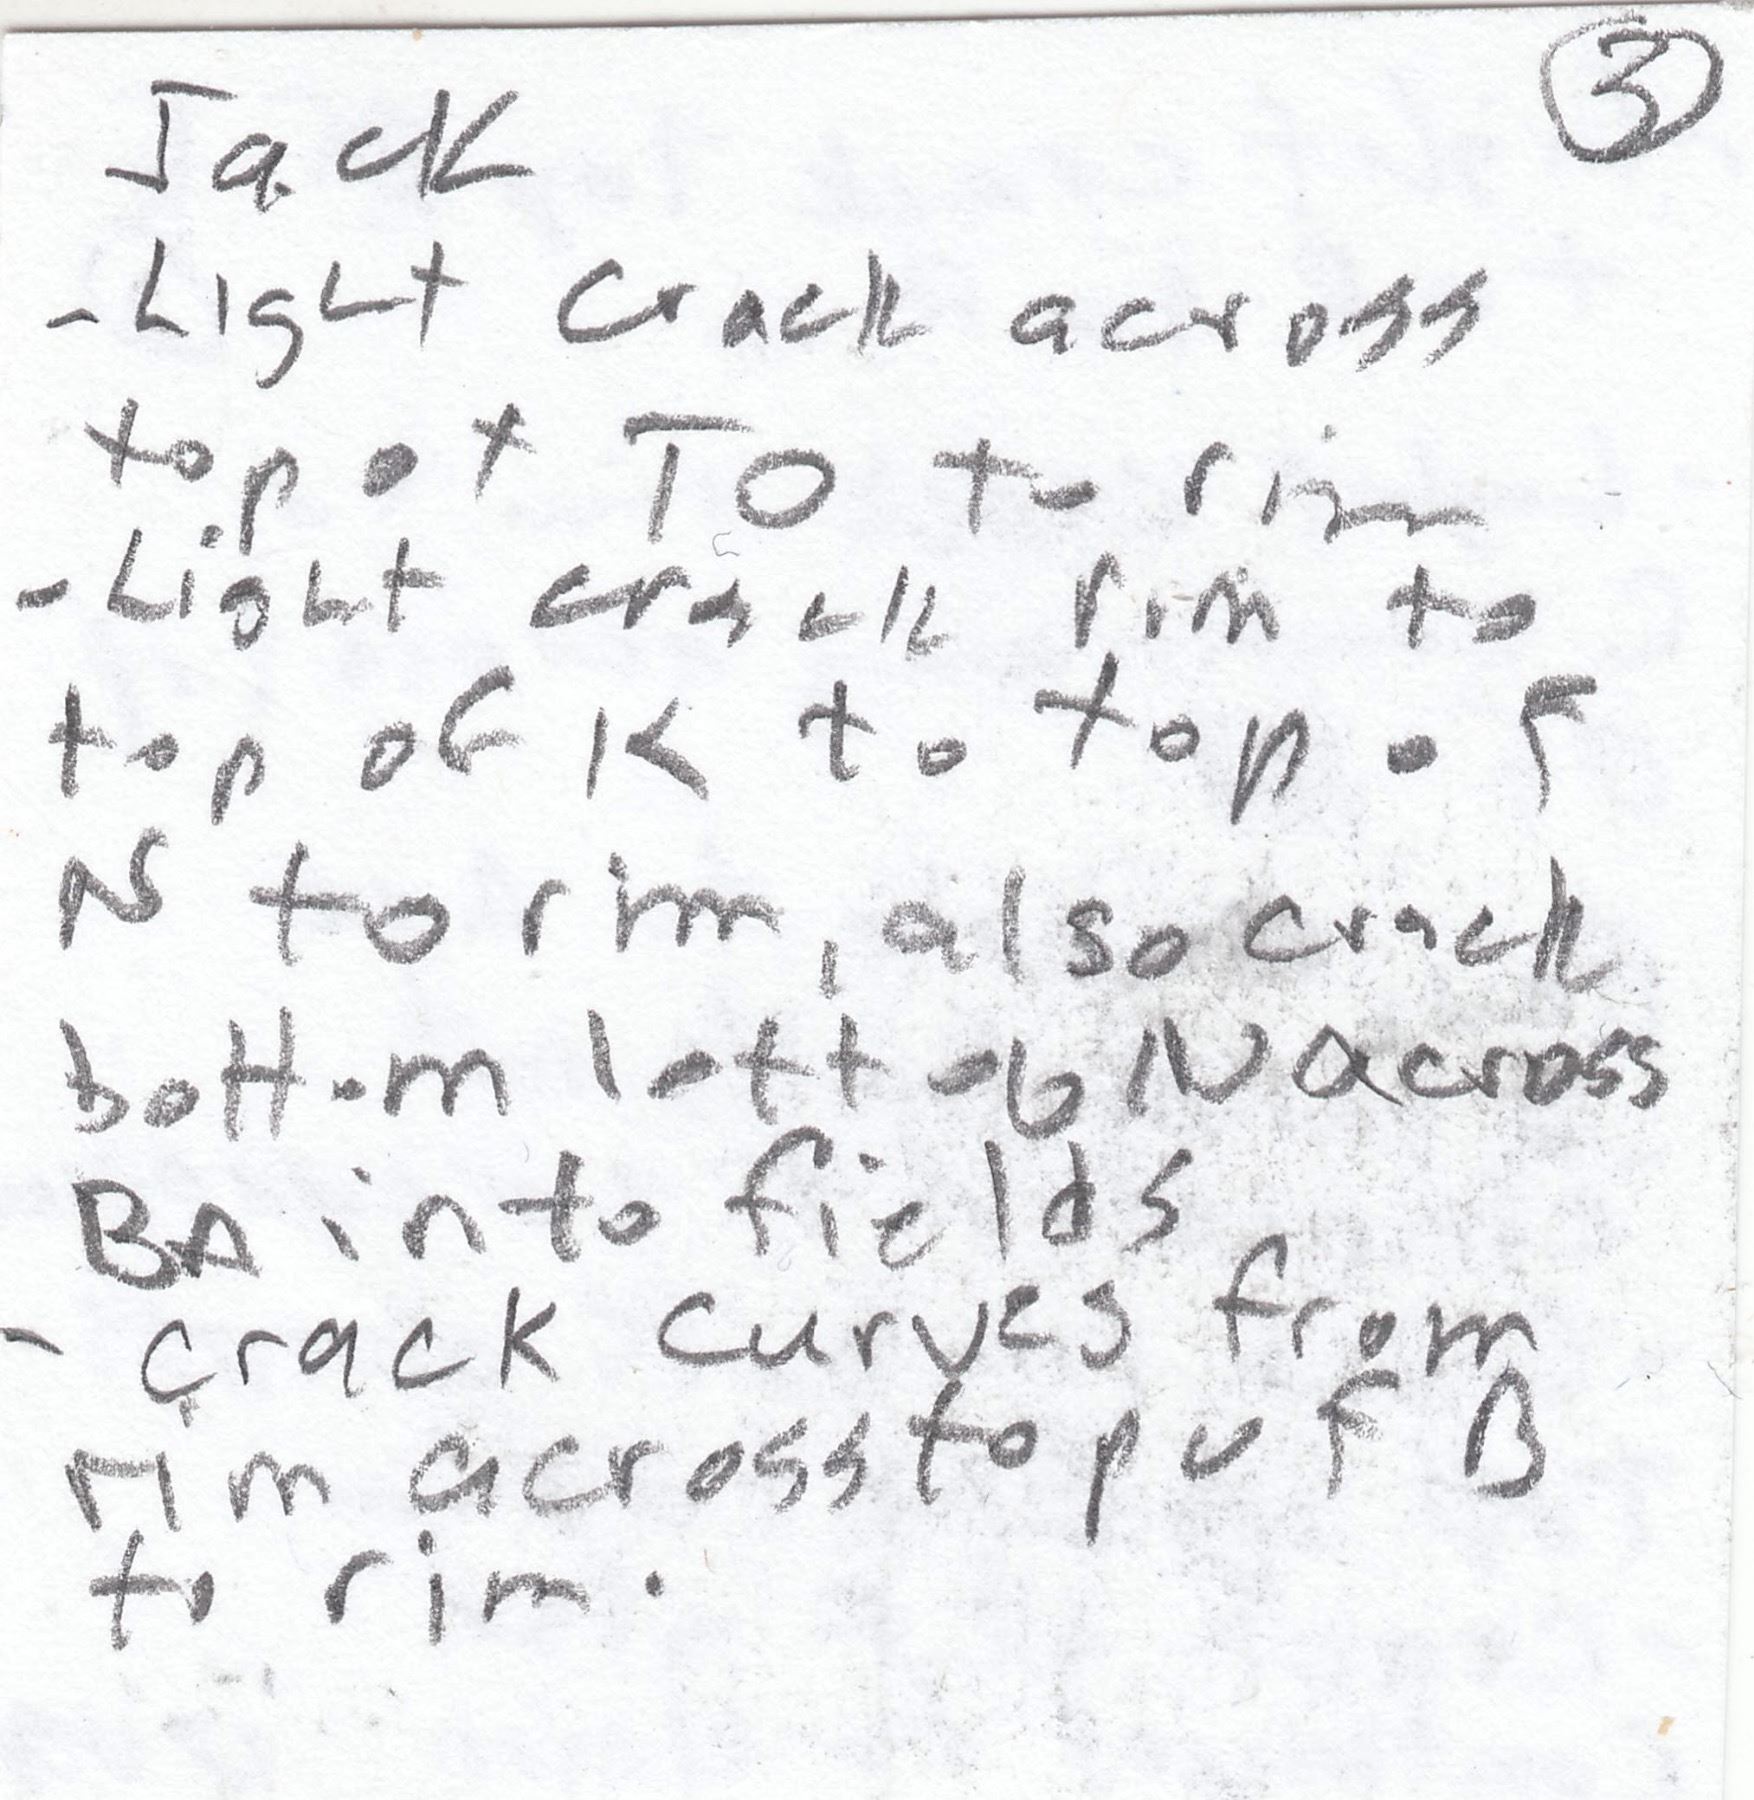 3
Jack
- Light crack across
top of TO to rim
- Light crack rim to
top of K to top of
N to rim, also crack
bottom left of N across
BA into fields
- crack curves from
rim across top of B
to rim.